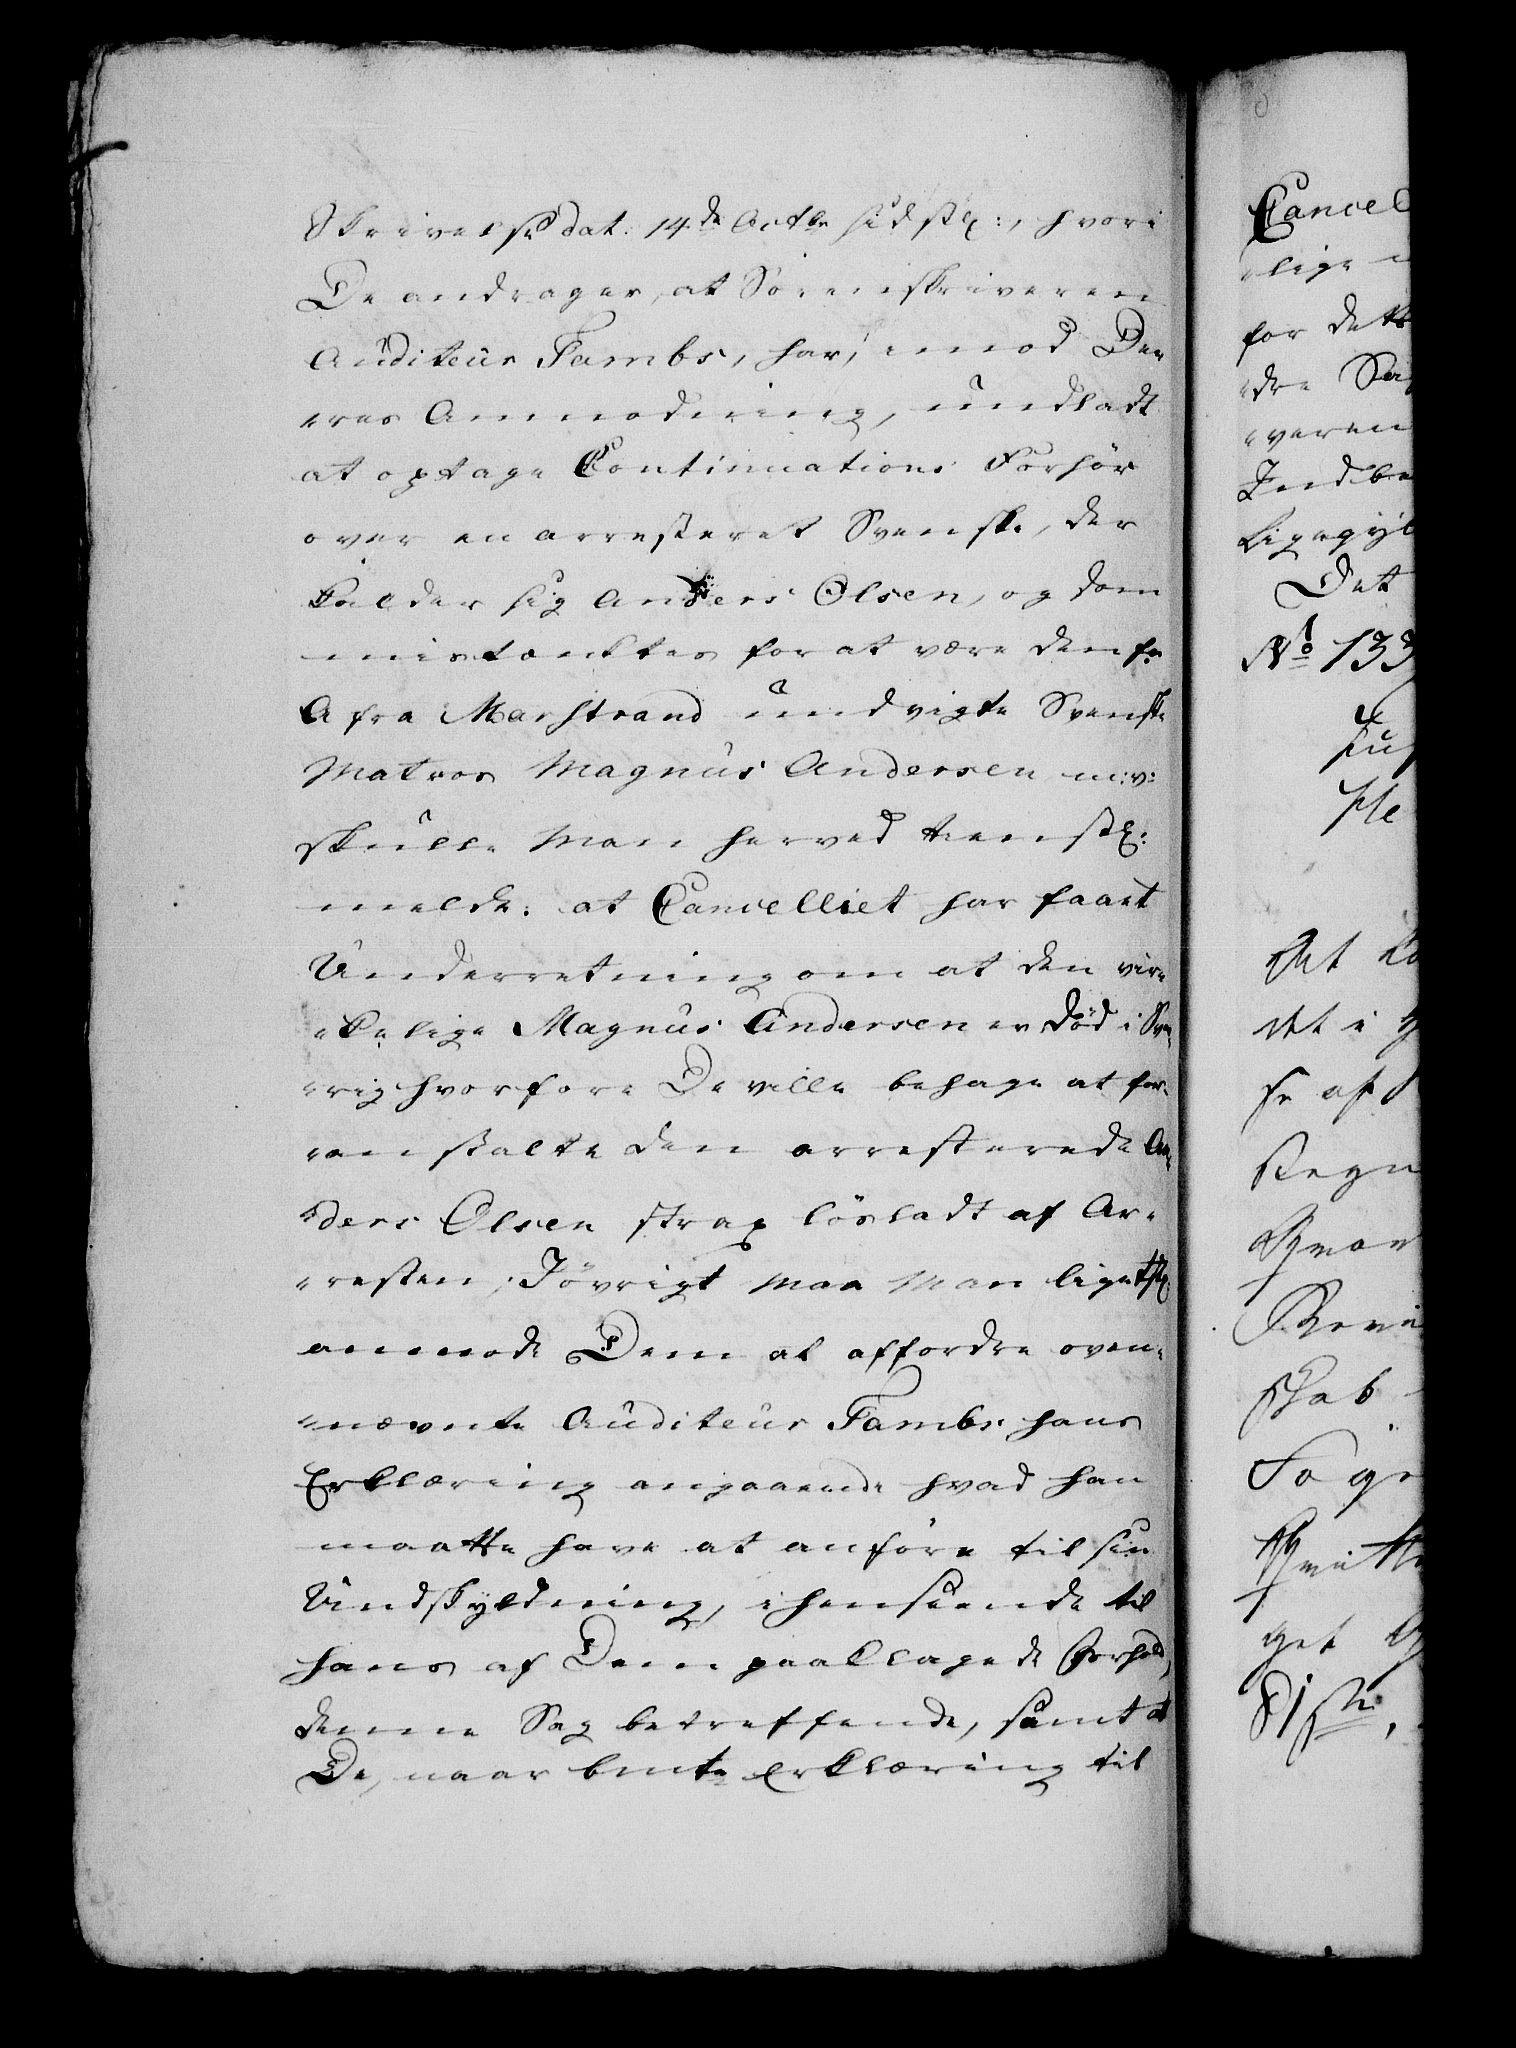 Skrivelse dat. 14de Octbr sidstl:, hvori
De andrager, at Sorenskriveren
Auditeur Fambs, har, imod De„
„res Anmodning, undladt
at optage Continuations Forhör
over en arresteret Svenske, der
kalder sig Anders Olsen, og som
mistænktes for at være den
fra Marstrand undvigte Svenske
Matros Magnus Andersen m:v:
skulle Man herved tienstl:
melde: at Cancelliet har faaet
Underretning om at den vir„
„kelige Magnus Andersen er död i Sve„
„rig hvorfore De ville behage at for„
„anstalte den arresterede An„
„ders Olsen strax lösladt af Ar„
„resten; Jövrigt maa Man ligetstl:
anmode Dem at affordre oven„
„nævnte Auditeur Fambs hans
Erklæring angaaende hvad han
maatte have at anföre til sin
Undskyldning, i henseende til
hans af Dem paaklagede Forhold,
denne Sag betreffende, samt at
De, naar bmte Erklæring til
Cancel
„lige
for dett
„dre
„veren
Indbe
ligegyl
Det
No 133